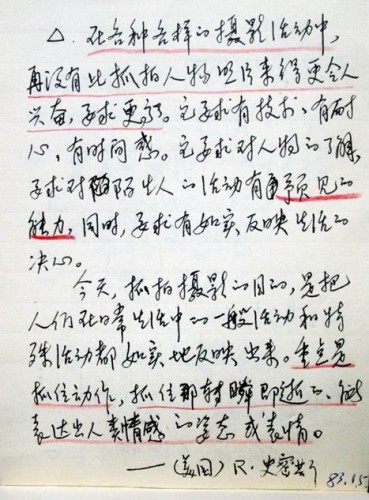 △. 在各种各样的摄影活动中,
再没有比抓拍人物照片来得更令人
兴奋,要求更高。它要求有技术、有耐
心,有时间感。它要求对人物的了解,
要求对陌生人的活动有预见的
能力,同时,要求有如实反映生活的
决心。
今天,抓拍摄影的目的,是把
人们在日常生活中的一般活动和特
殊活动都如实地反映出来。重点是
抓住动作,抓住那转瞬即逝的、能
表达出人类情感的姿态或表情。
——(美国)R·史密斯
83.15